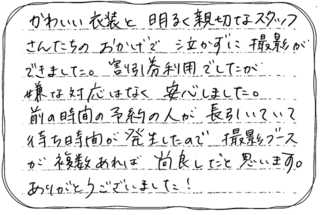 かわいい衣装と 明るく親切なスタッフ
さんたちの おかげで 泣かずに 撮影が
できました。割引券利用でしたが
嫌な対応はなく 安心しました。
前の時間の予約の人が 長引いていて
待ち時間が発生したので 撮影ブース
が 複数あれば 尚良しだと思います。
ありがとうございました！